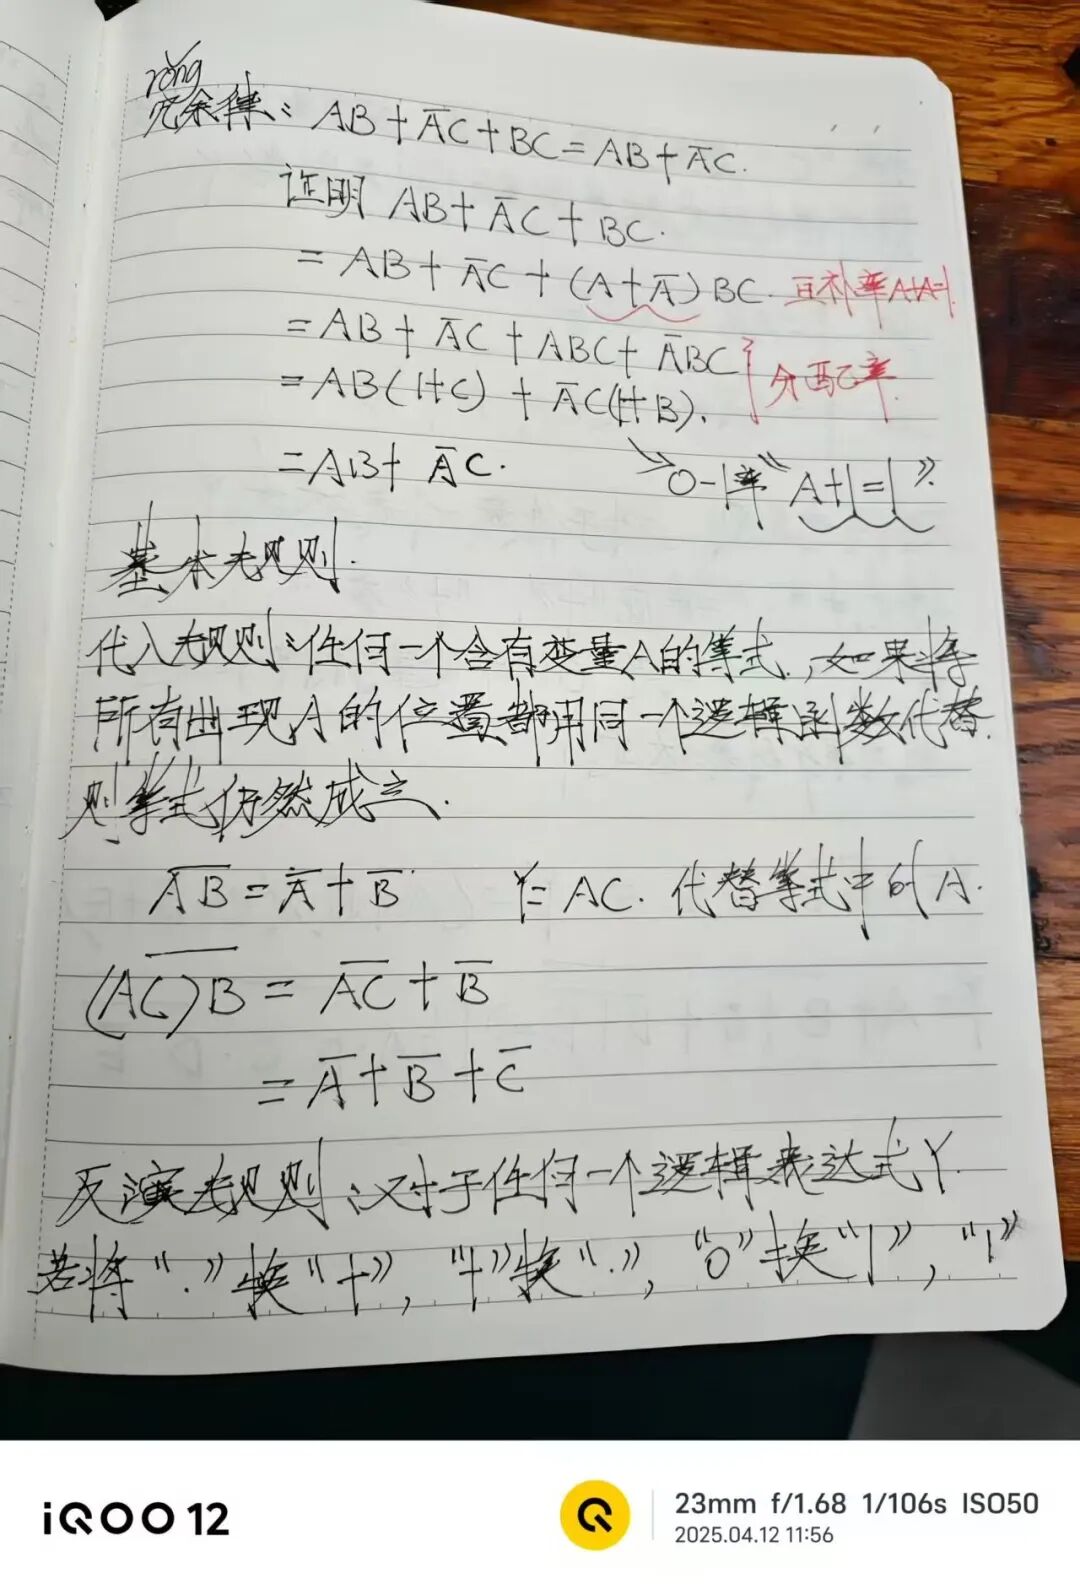 rǒng
冗余律：AB+A̅C+BC=AB+A̅C.
证明 AB+A̅C+BC.
=AB+A̅C+(A+A̅)BC. 互补率A+A̅=1.
=AB+A̅C+ABC+A̅BC
=AB(1+C)+A̅C(1+B). 分配率.
=AB+A̅C. 0-1率“A+1=1”.
基本规则.
代入规则：任何一个含有变量A的等式，如果将
所有出现A的位置都用同一个逻辑函数代替.
则等式仍然成立.
A̅B̅=A̅+B̅ Y=AC. 代替等式中的A.
(AC)B̅=A̅C̅+B̅
=A̅+B̅+C̅
反演规则：对于任何一个逻辑表达式Y.
若将“·”换“+”，“+”换“·”，“0”换“1”，“1”
iQOO 12
23mm f/1.68 1/106s ISO50
2025.04.12 11:56